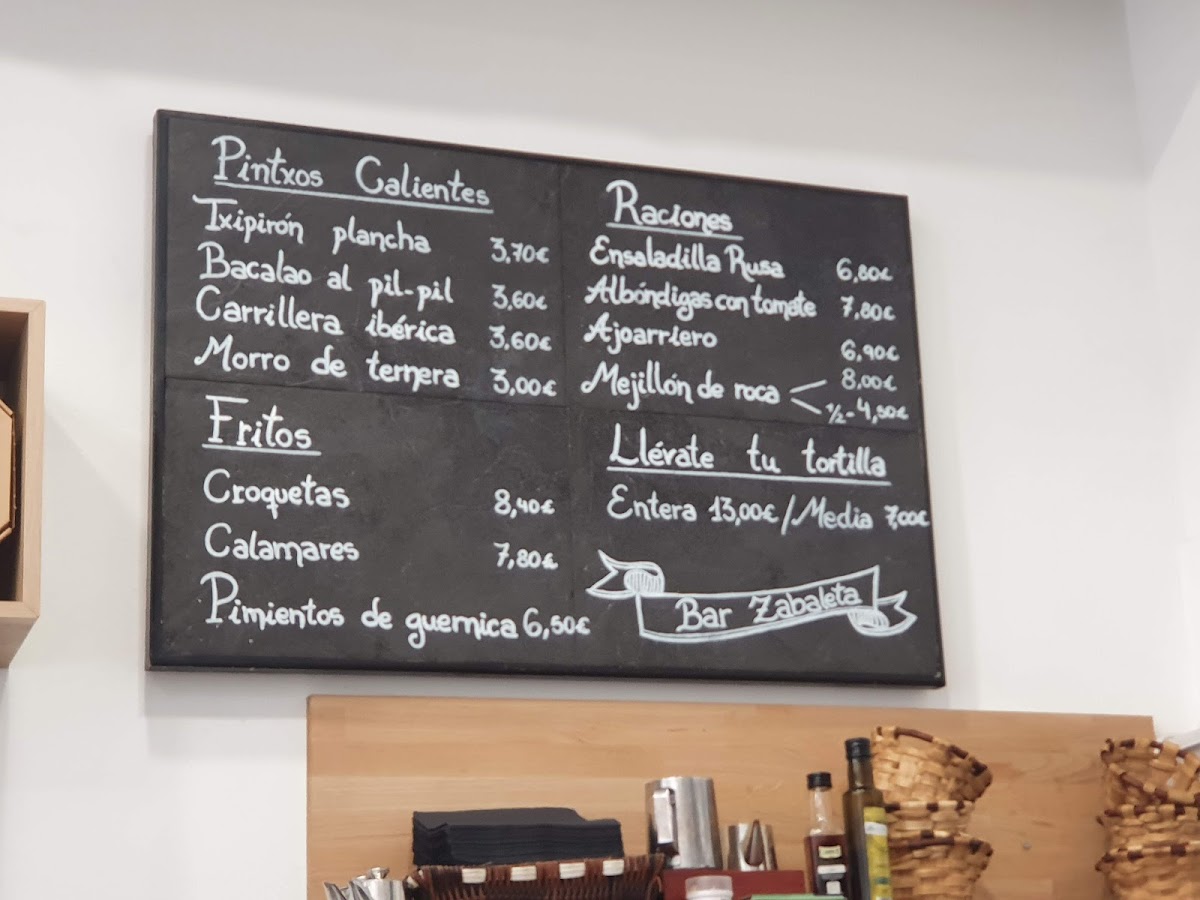 Pintxos Calientes
Txipirón plancha 3,70€
Bacalao al pil-pil 3,60€
Carrillera ibérica 3,60€
Morro de ternera 3,00€
Fritos
Croquetas 8,40€
Calamares 7,80€
Pimientos de guernica 6,50€
Raciones
Ensaladilla Rusa 6,80€
Albóndigas con tomate 7,80€
Ajoarriero 6,90€
Mejillón de roca 8,00€
½- 4,50€
Llévate tu tortilla
Entera 13,00€/Media 7,00€
Bar Zabaleta